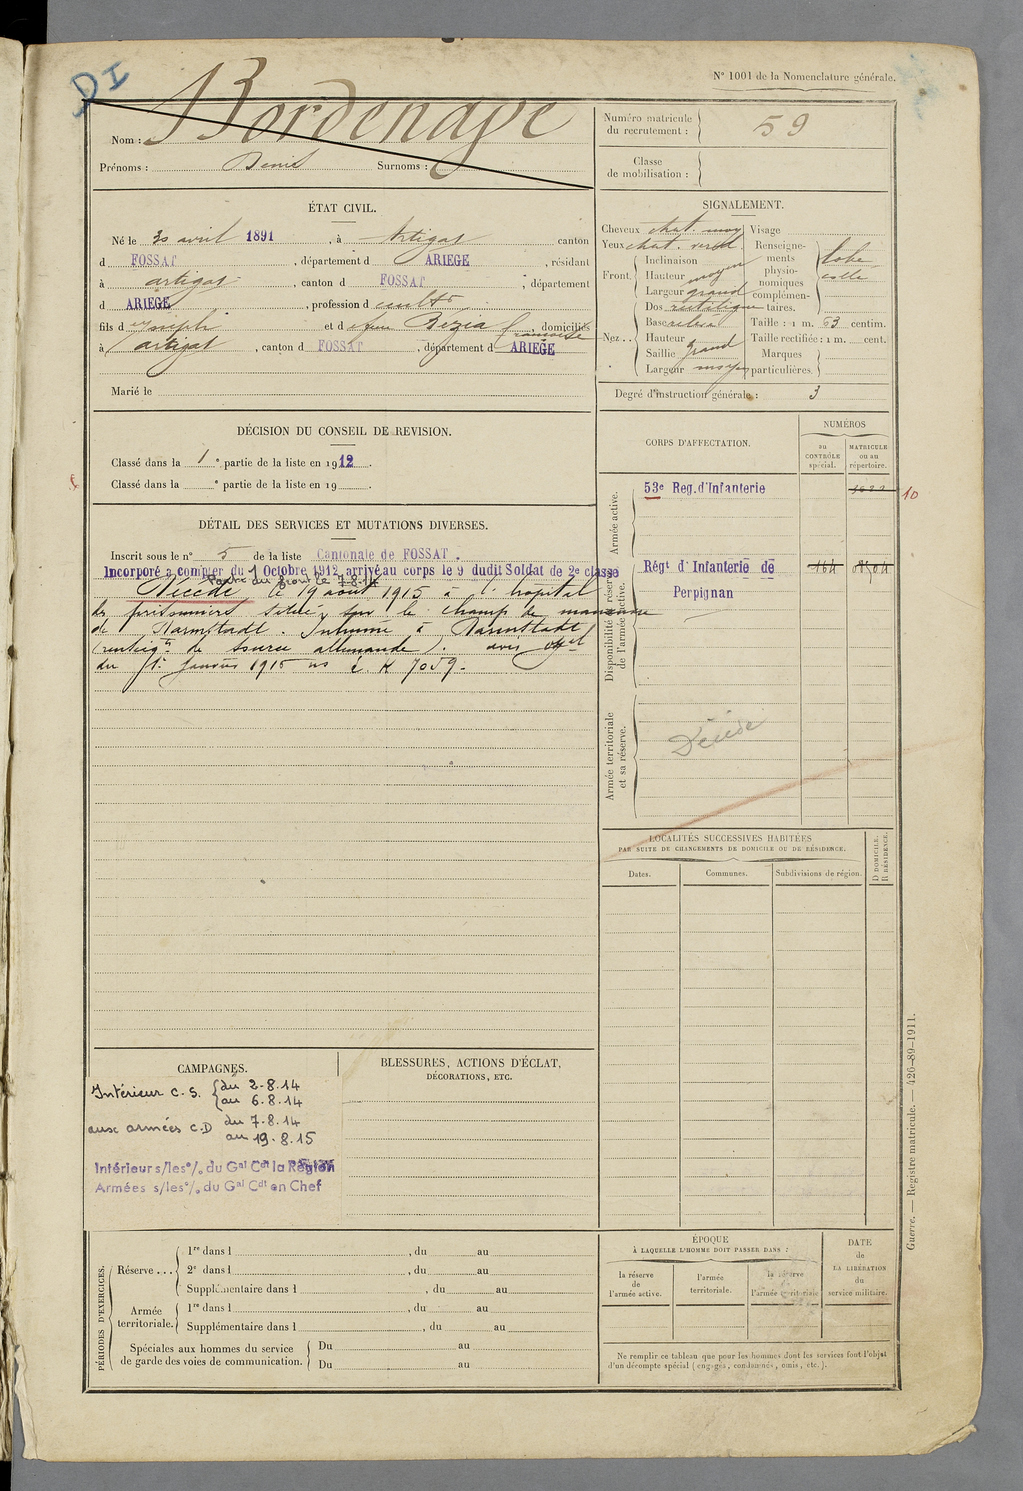 DI
N° 1001 de la Nomenclature générale.
Nom : Bordenave
Prénoms : Denis Surnoms :
Numéro matricule du recrutement : 59
Classe de mobilisation :
ÉTAT CIVIL.
Né le 30 avril 1891, à Artigat canton
d FOSSAT, département d ARIEGE, résidant
à artigat, canton d FOSSAT, département
d ARIEGE, profession d cultr
fils d joseph et d Anne Bézia françoise, domiciliés
à artigat, canton d FOSSAT, département d ARIEGE
Marié le
SIGNALEMENT.
Cheveux chat. moy Visage
Yeux chat. verd. Renseignements physionomiques complémentaires. lobe collé
Front. Inclinaison
Hauteur moyen
Largeur grand
Nez.. Dos rectiligne
Base relevé Taille : 1 m. 63 centim.
Hauteur Taille rectifiée : 1 m. cent.
Saillie grand Marques
Largeur moyen particulières.
Degré d'instruction générale : 3
DÉCISION DU CONSEIL DE REVISION.
Classé dans la 1e partie de la liste en 1912.
Classé dans la e partie de la liste en 19
DÉTAIL DES SERVICES ET MUTATIONS DIVERSES.
Inscrit sous le n° 5 de la liste Cantonale de FOSSAT.
Incorporé à compter du 1 Octobre 1912 arrivé au corps le 9 dudit Soldat de 2e classe
le 7.8.14
Décédé le 19 août 1915 à l'hôpital
des prisonniers situé sur le champ de manœuvre
de Darmstadt. Inhumé à Darmstadt
(renseigts de source allemande). avis offel
du janvier 1916 K 7059.
CORPS D'AFFECTATION.
NUMÉROS
au CONTRÔLE spécial.
MATRICULE ou au répertoire.
Armée active.
53e Reg. d'Infanterie
10
Disponibilité et réserve de l'armée active.
Régt d'Infanterie de Perpignan 164
Armée territoriale et sa réserve.
Décédé
LOCALITÉS SUCCESSIVES HABITÉES
PAR SUITE DE CHANGEMENTS DE DOMICILE OU DE RÉSIDENCE.
Dates. Communes. Subdivisions de région. D DOMICILE. R RÉSIDENCE.
CAMPAGNES.
Intérieur C.S. du 2-8.14
au 6.8.14
aux armées C.D du 7.8.14
au 19.8.15
Intérieur s/les°/° du Gal Cdt la Région
Armées s/les°/° du Gal Cdt en Chef
BLESSURES, ACTIONS D'ÉCLAT,
DÉCORATIONS, ETC.
PÉRIODES D'EXERCICES.
Réserve...
1re dans l , du au
2e dans l , du au
Supplémentaire dans l , du au
Armée territoriale.
1re dans l , du au
Supplémentaire dans l , du au
Spéciales aux hommes du service de garde des voies de communication.
Du au
Du au
ÉPOQUE
À LAQUELLE L'HOMME DOIT PASSER DANS :
la réserve de l'armée active.
l'armée territoriale.
la réserve de l'armée territoriale
DATE de LA LIBÉRATION du service militaire.
Ne remplir ce tableau que pour les hommes dont les services font l'objet
d'un décompte spécial (engagés, condamnés, omis, etc.).
Guerre. — Registre matricule. — 426-89-1911.